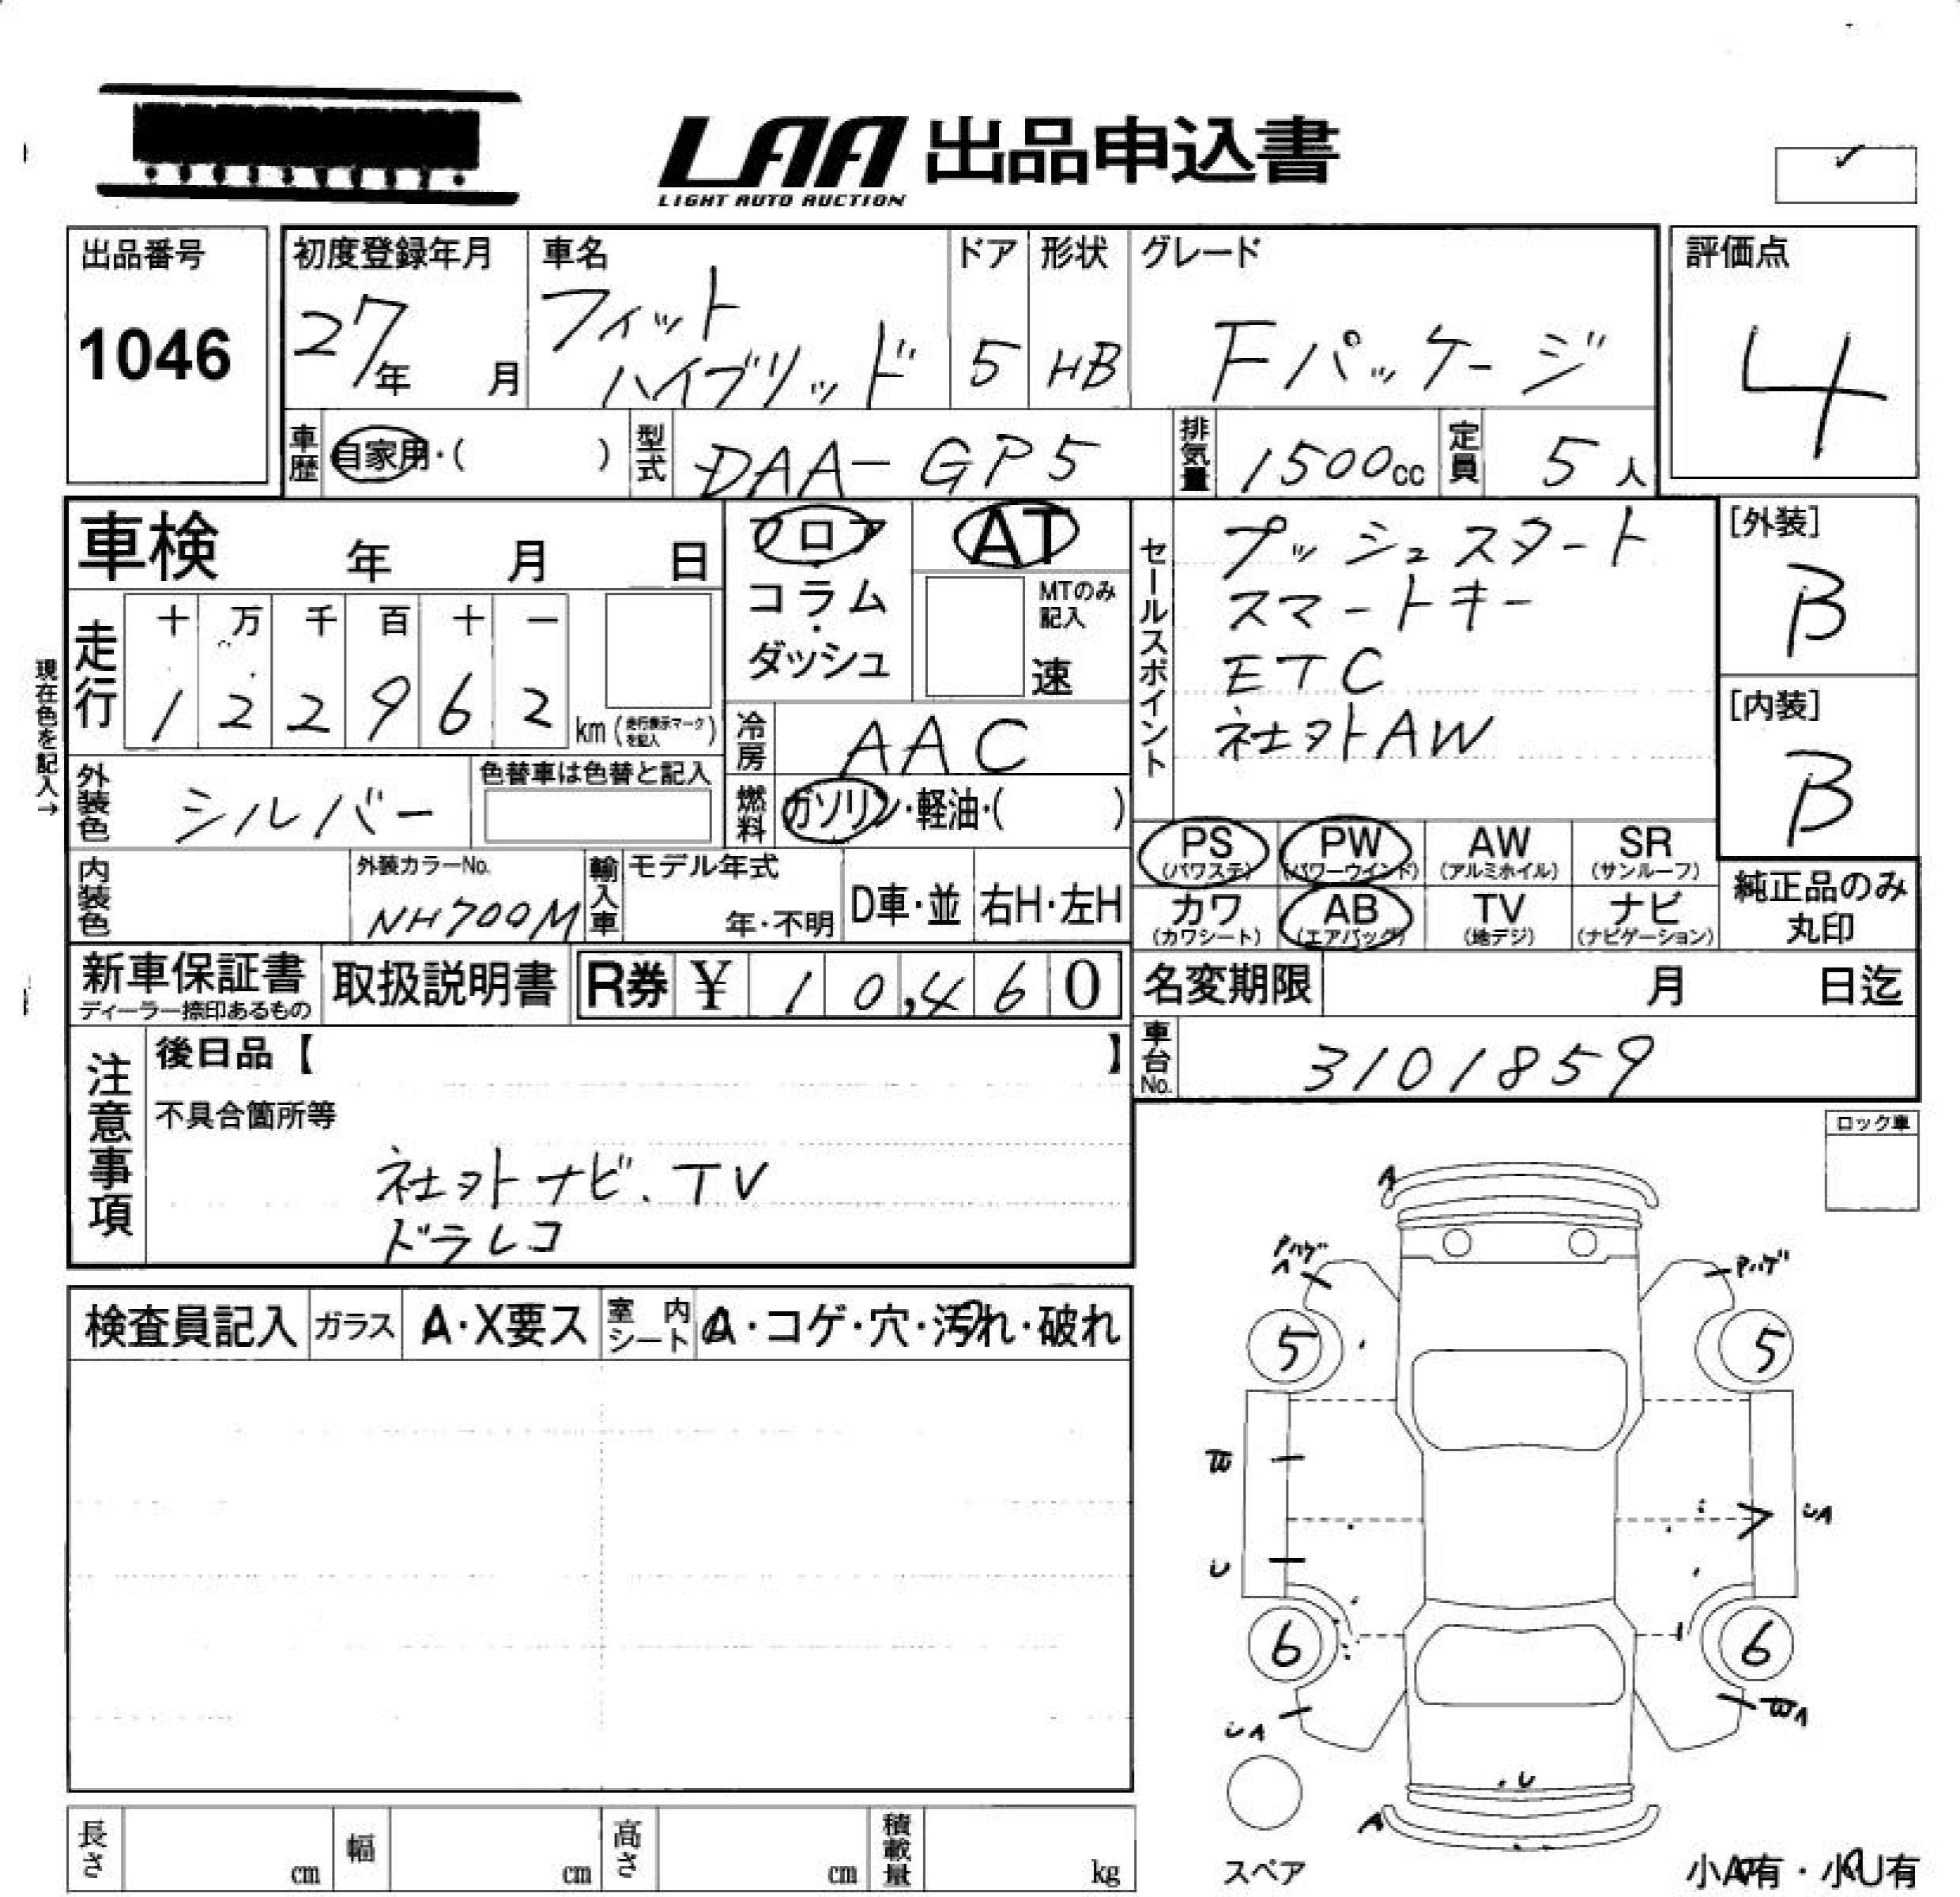 LAA 出品申込書
LIGHT AUTO AUCTION
出品番号
1046
初度登録年月
27年 月
車名
フィット
ハイブリッド
ドア
5
形状
HB
グレード
Fパッケージ
評価点
4
車歴 自家用・( )
型式 DAA-GP5
排気量 1500cc
定員 5人
車検 年 月 日
フロア
・
コラム
・
ダッシュ
AT
MTのみ
記入
速
セールスポイント
プッシュスタート
スマートキー
ETC
社外AW
[外装]
B
[内装]
B
現在色を記入→
走行
十 万 千 百 十 一
1 2 2 9 6 2 km (走行表示マークを記入)
冷房 AAC
外装色 シルバー
色替車は色替と記入
燃料 ガソリン・軽油・( )
PS (パワステ)
PW (パワーウインド)
AW (アルミホイル)
SR (サンルーフ)
カワ (カワシート)
AB (エアバッグ)
TV (地デジ)
ナビ (ナビゲーション)
純正品のみ
丸印
内装色
外装カラーNo.
NH700M
輸入車
モデル年式
年・不明
D車・並
右H・左H
新車保証書
ディーラー捺印あるもの
取扱説明書
R券 ¥ 10,460
名変期限 月 日迄
車台No. 3101859
注意事項
後日品【 】
不具合箇所等
社外ナビ.TV
ドラレコ
ロック車
検査員記入
ガラス A・X要ス
室内シート A・コゲ・穴・汚れ・破れ
A
Pハゲ
A
Pハゲ
5
5
U
6
6
U
A
スペア
小A有・小U有
長さ cm
幅 cm
高さ cm
積載量 kg